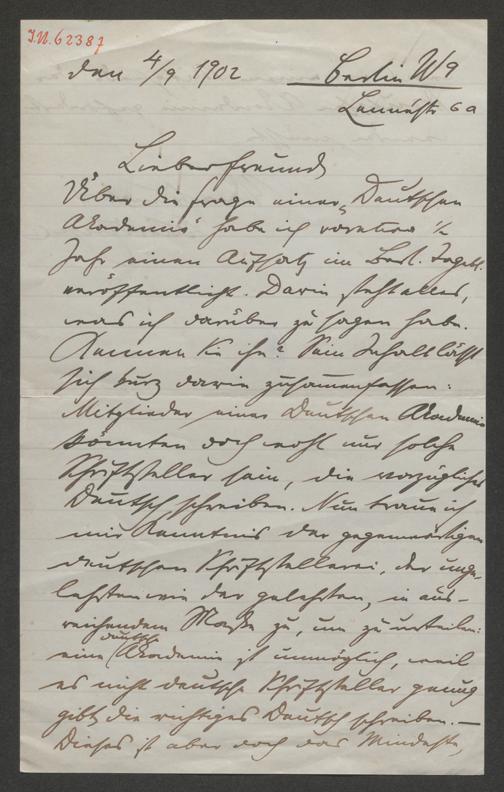 J.N. 62387
den 4/9 1902 Berlin W9
Lennéstr 6a
Lieber Freund
Über die Frage einer „Deutschen
Akademie" habe ich vor etwa ½
Jahr einen Aufsatz im Berl. Tagebl.
veröffentlicht. Darin steht alles,
was ich darüber zu sagen habe.
Kennen Sie ihn? Sein Inhalt lässt
sich kurz dahin zusammenfassen:
Mitglieder einer Deutschen Akademie
könnten doch wohl nur solche
Schriftsteller sein, die vorzügliches
Deutsch schreiben. Nun traue ich
mir Kenntnis der gegenwärtigen
deutschen Schriftstellerei, der unge-
lehrten wie der gelehrten, in aus-
reichendem Maße zu, um zu urteilen:
eine deutsche Akademie ist unmöglich, weil
es nicht deutsche Schriftsteller genug
gibt die richtiges Deutsch schreiben. —
Dieses ist aber doch das Mindeste,